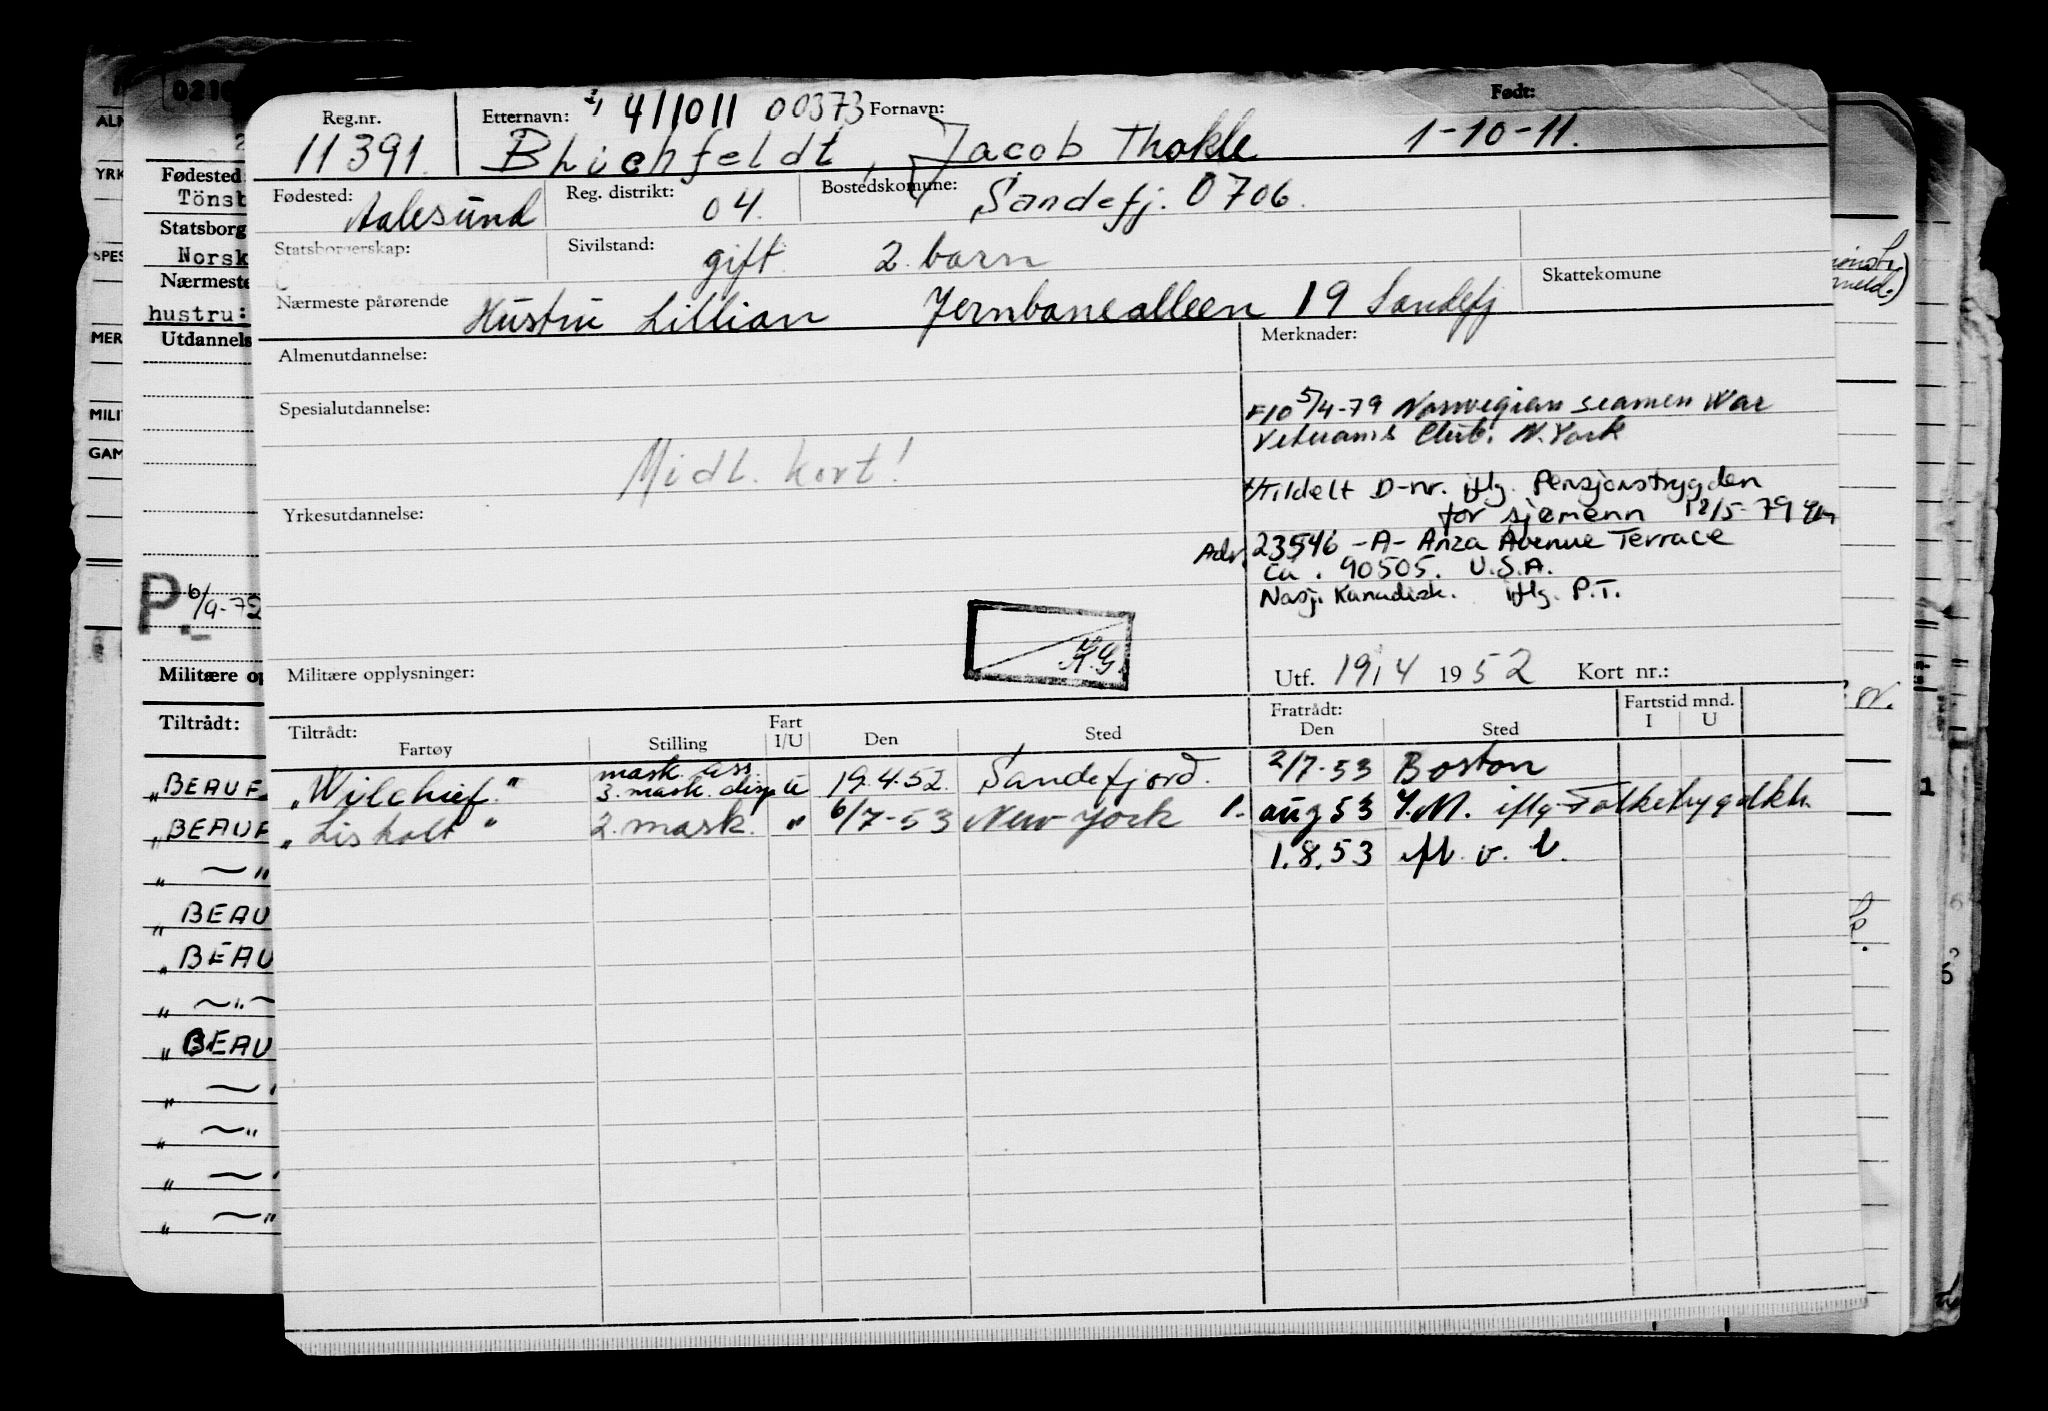 Reg.nr. Etternavn: 411011 00373 Fornavn: Født:
11391. Blichfeldt, Jacob Thokle 1-10-11.
Fødested: Aalesund Reg. distrikt: 04. Bostedskomune: Sandefj. 0706.
Statsborgerskap: Sivilstand: gift 2 barn
Nærmeste pårørende Hustru Lillian Jernbanealleen 19 Sandefj Skattekomune
Almenutdannelse: Merknader:
Spesialutdannelse: F10 5/4-79 Norwegian seamen War
Veterans Club. N. York
Midl. kort!
Tildelt D-nr. iflg. Pensjonstrygden
for sjømenn 12/5-79
Yrkesutdannelse:
Adr. 23546 -A- Anza Avenue Terrace
Ca. 90505. U.S.A.
Nasj. Kanadisk. iflg. P.T.
K.G.
Militære opplysninger: Utf. 19/4 1952 Kort nr.:
Tiltrådt: Fratrådt: Fartstid mnd.
Fartøy Stilling Fart I/U Den Sted Den Sted I U
"Wilchief." mask. ass. 3. mask. disp u 19.4.52. Sandefjord. 2/7-53 Boston
"Lisholt" 2. mask. " 6/7-53 New York aug 53 Y.M. iflg. Folketrygdkh.
1.8.53 afl. v. l.
0210
Fødested:
Tönsb
Statsborg
Norsk
Nærmeste
hustru:
Utdannels
P. 6/9-72
Militære op
Tiltrådt:
"BEAUF
"BEAUF
" —"
" BEAU
" BEAU
" —"—
" BEAU
" —"
" —"
" —"
" —"
YRK
SPES
MER
MILI
GAM